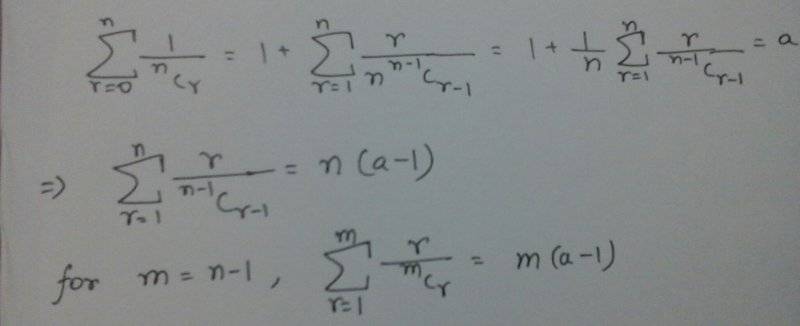 $\sum_{r=0}^{n} \frac{1}{{}^{n}C_{r}} = 1 + \sum_{r=1}^{n} \frac{r}{n\,{}^{n-1}C_{r-1}} = 1 + \frac{1}{n} \sum_{r=1}^{n} \frac{r}{{}^{n-1}C_{r-1}} = a$
$\Rightarrow \sum_{r=1}^{n} \frac{r}{{}^{n-1}C_{r-1}} = n(a-1)$
for $m = n-1$, $\sum_{r=1}^{m} \frac{r}{{}^{m}C_{r}} = m(a-1)$